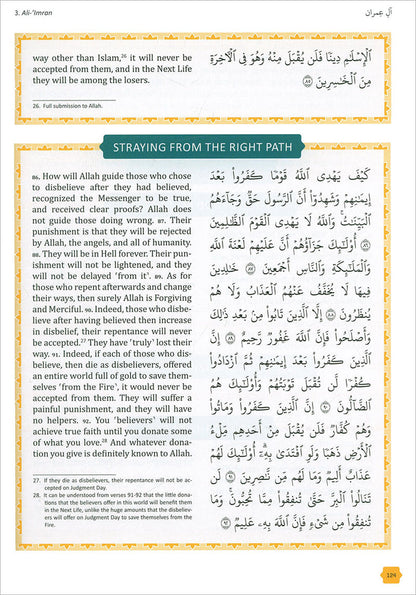 3. Ali-'Imran
آل عِمران
way other than Islam,26 it will never be
accepted from them, and in the Next Life
they will be among the losers.
ٱلْإِسْلَـٰمِ دِينًا فَلَن يُقْبَلَ مِنْهُ وَهُوَ فِى ٱلْـَٔاخِرَةِ
مِنَ ٱلْخَـٰسِرِينَ ٨٥
26. Full submission to Allah.
STRAYING FROM THE RIGHT PATH
86. How will Allah guide those who chose
to disbelieve after they had believed,
recognized the Messenger to be true,
and received clear proofs? Allah does
not guide those doing wrong. 87. Their
punishment is that they will be rejected
by Allah, the angels, and all of humanity.
88. They will be in Hell forever. Their pun-
ishment will not be lightened, and they
will not be delayed ‘from it’. 89. As for
those who repent afterwards and change
their ways, then surely Allah is Forgiving
and Merciful. 90. Indeed, those who disbe-
lieve after having believed then increase
in disbelief, their repentance will never
be accepted.27 They have ‘truly’ lost their
way. 91. Indeed, if each of those who dis-
believe, then die as disbelievers, offered
an entire world full of gold to save them-
selves ‘from the Fire’, it would never be
accepted from them. They will suffer a
painful punishment, and they will have
no helpers. 92. You ‘believers’ will not
achieve true faith until you donate some
of what you love.28 And whatever dona-
tion you give is definitely known to Allah.
كَيْفَ يَهْدِى ٱللَّهُ قَوْمًا كَفَرُوا۟ بَعْدَ
إِيمَـٰنِهِمْ وَشَهِدُوٓا۟ أَنَّ ٱلرَّسُولَ حَقٌّ وَجَآءَهُمُ
ٱلْبَيِّنَـٰتُ ۚ وَٱللَّهُ لَا يَهْدِى ٱلْقَوْمَ ٱلظَّـٰلِمِينَ
٨٦ أُو۟لَـٰٓئِكَ جَزَآؤُهُمْ أَنَّ عَلَيْهِمْ لَعْنَةَ ٱللَّهِ
وَٱلْمَلَـٰٓئِكَةِ وَٱلنَّاسِ أَجْمَعِينَ ٨٧ خَـٰلِدِينَ
فِيهَا لَا يُخَفَّفُ عَنْهُمُ ٱلْعَذَابُ وَلَا هُمْ
يُنظَرُونَ ٨٨ إِلَّا ٱلَّذِينَ تَابُوا۟ مِنۢ بَعْدِ ذَٰلِكَ
وَأَصْلَحُوا۟ فَإِنَّ ٱللَّهَ غَفُورٌ رَّحِيمٌ ٨٩ إِنَّ
ٱلَّذِينَ كَفَرُوا۟ بَعْدَ إِيمَـٰنِهِمْ ثُمَّ ٱزْدَادُوا۟
كُفْرًا لَّن تُقْبَلَ تَوْبَتُهُمْ وَأُو۟لَـٰٓئِكَ هُمُ
ٱلضَّآلُّونَ ٩٠ إِنَّ ٱلَّذِينَ كَفَرُوا۟ وَمَاتُوا۟
وَهُمْ كُفَّارٌ فَلَن يُقْبَلَ مِنْ أَحَدِهِم مِّلْءُ
ٱلْأَرْضِ ذَهَبًا وَلَوِ ٱفْتَدَىٰ بِهِۦٓ ۗ أُو۟لَـٰٓئِكَ لَهُمْ
عَذَابٌ أَلِيمٌ وَمَا لَهُم مِّن نَّـٰصِرِينَ ٩١ لَن
تَنَالُوا۟ ٱلْبِرَّ حَتَّىٰ تُنفِقُوا۟ مِمَّا تُحِبُّونَ ۚ وَمَا
تُنفِقُوا۟ مِن شَىْءٍ فَإِنَّ ٱللَّهَ بِهِۦ عَلِيمٌ ٩٢
27. If they die as disbelievers, their repentance will not be ac-
cepted on Judgment Day.
28. It can be understood from verses 91-92 that the little dona-
tions that the believers offer in this world will benefit them
in the Next Life, unlike the huge amounts that the disbeliev-
ers will offer on Judgment Day to save themselves from the
Fire.
124